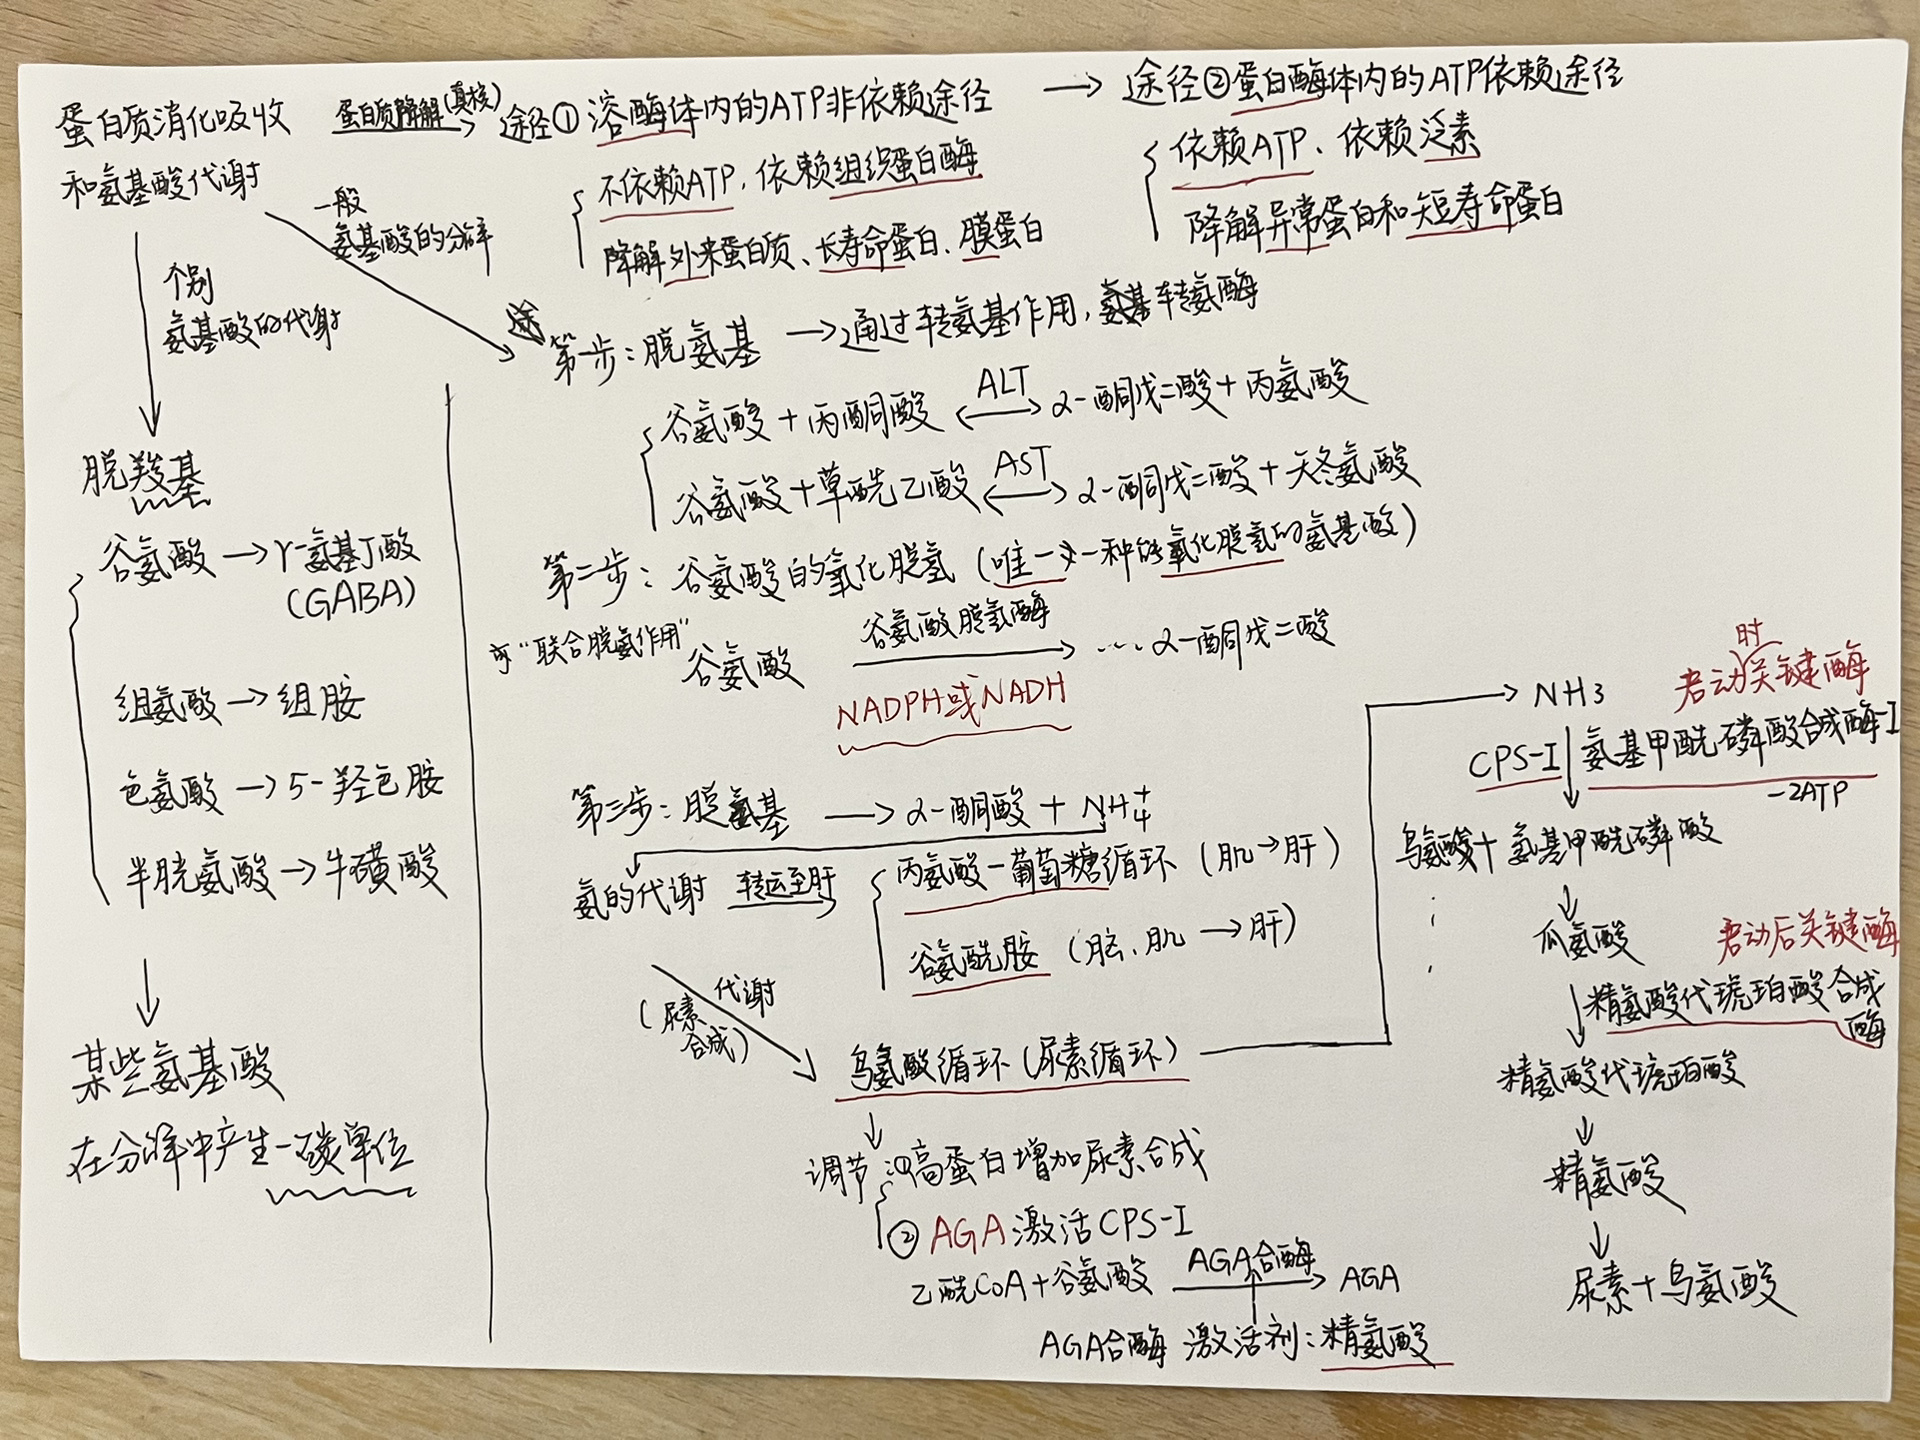 蛋白质消化吸收
和氨基酸代谢
蛋白质降解(真核)
途径① 溶酶体内的ATP非依赖途径
不依赖ATP，依赖组织蛋白酶
降解外来蛋白质、长寿命蛋白、膜蛋白
途径②蛋白酶体内的ATP依赖途径
依赖ATP、依赖泛素
降解异常蛋白和短寿命蛋白
一般
氨基酸的分解
个别
氨基酸的代谢
脱羧基
谷氨酸 → γ-氨基丁酸
(GABA)
组氨酸 → 组胺
色氨酸 → 5-羟色胺
半胱氨酸 → 牛磺酸
某些氨基酸
在分解中产生一碳单位
第一步：脱氨基 → 通过转氨基作用，转氨酶
谷氨酸 + 丙酮酸 ALT α-酮戊二酸 + 丙氨酸
谷氨酸 + 草酰乙酸 AST α-酮戊二酸 + 天冬氨酸
第二步：谷氨酸的氧化脱氢 (唯一一种能氧化脱氢的氨基酸)
"联合脱氨作用"
谷氨酸 谷氨酸脱氢酶 → …… α-酮戊二酸
NADPH或NADH
第三步：脱氨基 → α-酮酸 + NH4+
氨的代谢 转运至肝
丙氨酸-葡萄糖循环 (肌→肝)
谷氨酰胺 (脑、肌→肝)
代谢
(尿素
合成)
鸟氨酸循环(尿素循环)
调节：①高蛋白增加尿素合成
② AGA 激活 CPS-I
乙酰CoA+谷氨酸 AGA合酶 → AGA
AGA合酶 激活剂：精氨酸
→ NH3
启动时关键酶
CPS-I 氨基甲酰磷酸合成酶-I
-2ATP
鸟氨酸 + 氨基甲酰磷酸
瓜氨酸
启动后关键酶
精氨酸代琥珀酸合成
酶
精氨酸代琥珀酸
精氨酸
尿素 + 鸟氨酸